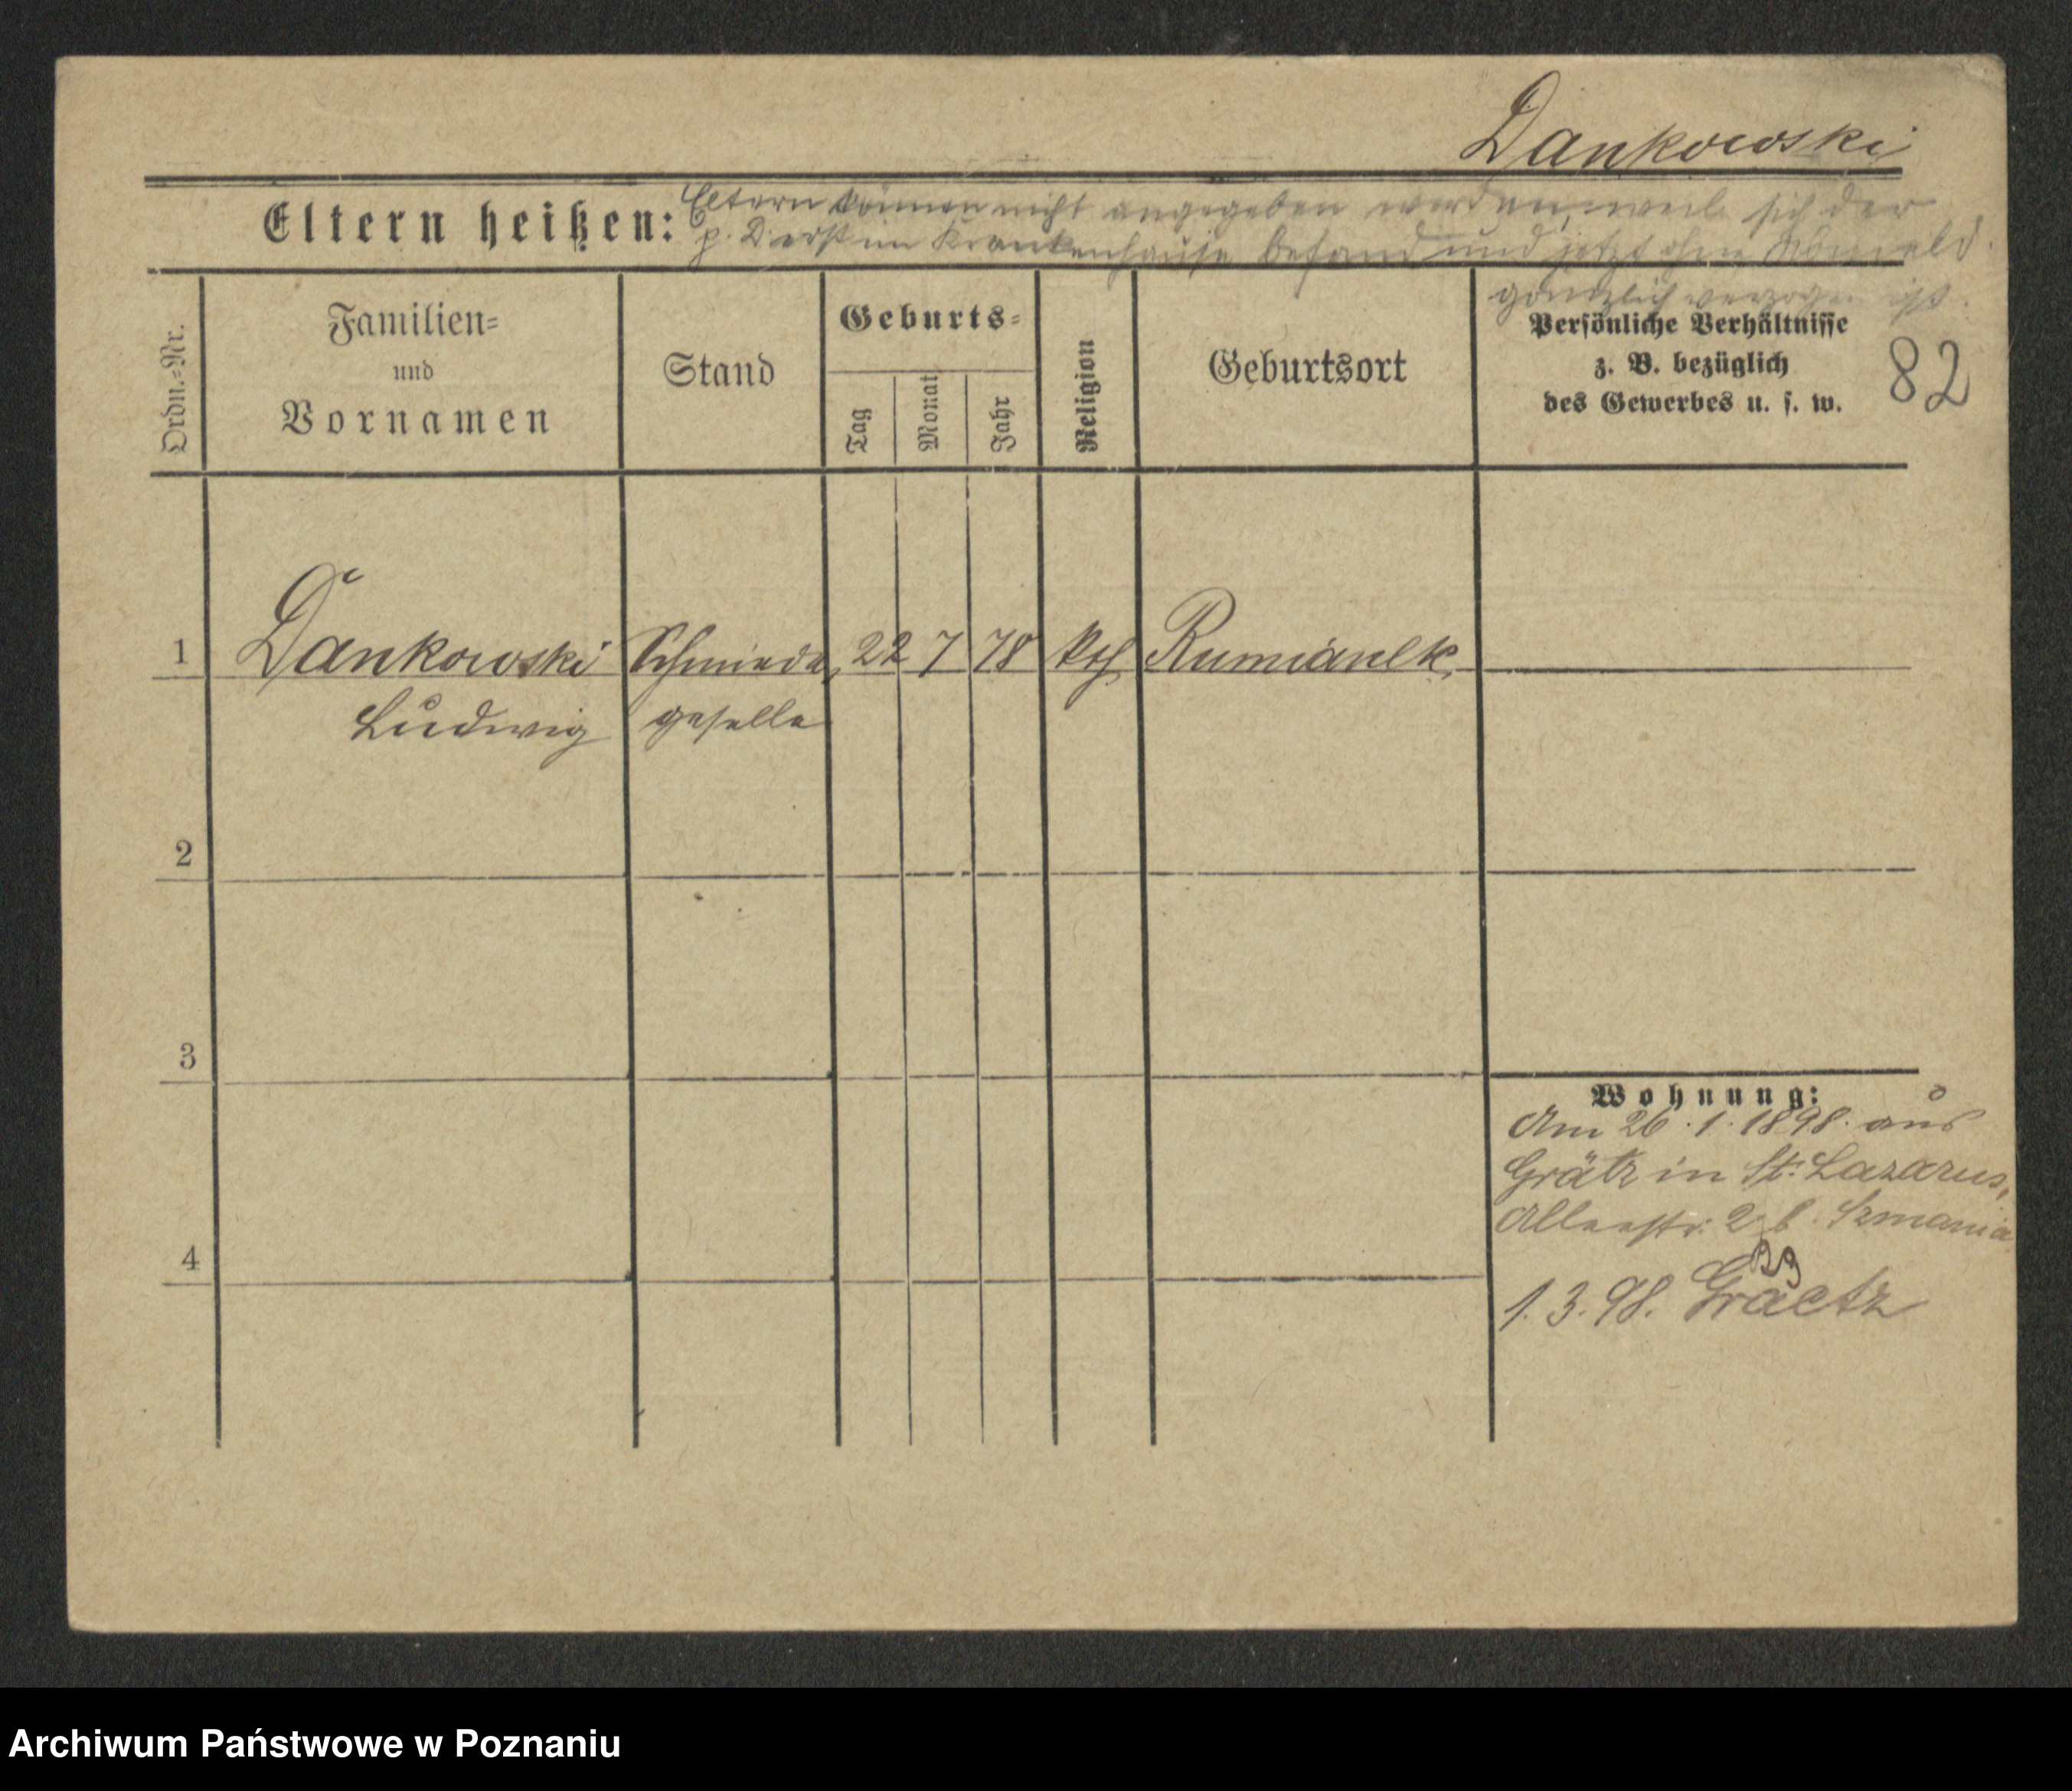 Dankowski
Eltern heißen: Eltern können nicht angegeben werden, weil sich der
p. D. erst im Krankenhause befand und jetzt ohne
gänzlich verzogen ist.
Ordn.=Nr.
Familien=
und
Vornamen
Stand
Geburts=
Tag
Monat
Jahr
Religion
Geburtsort
Persönliche Verhältnisse
z. B. bezüglich
des Gewerbes u. s. w.
82
1 Dankowski Schmiede 22 7 78 kth Rumianek
Ludwig geselle
2
3
Wohnung:
Am 26.1.1898. aus
Grätz in St. Lazarus,
Alleestr. 2 b. Szmania
4
1.3.98. Graetz
Archiwum Państwowe w Poznaniu